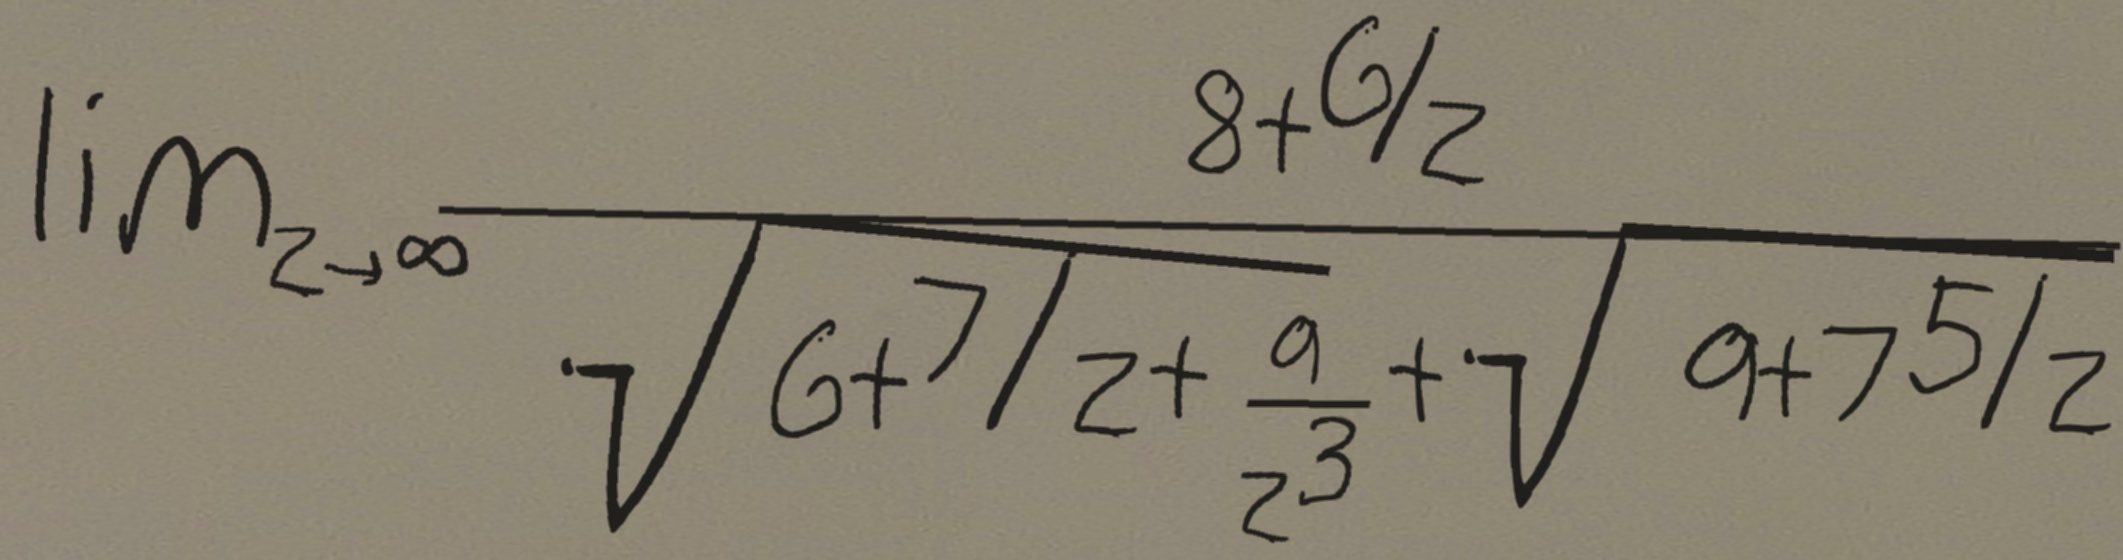 \lim_{z \to \infty} \frac{8 + 6/z}{\sqrt{6 + 7/z + \frac{9}{z^3}} + \sqrt{9 + 7^5/z}}